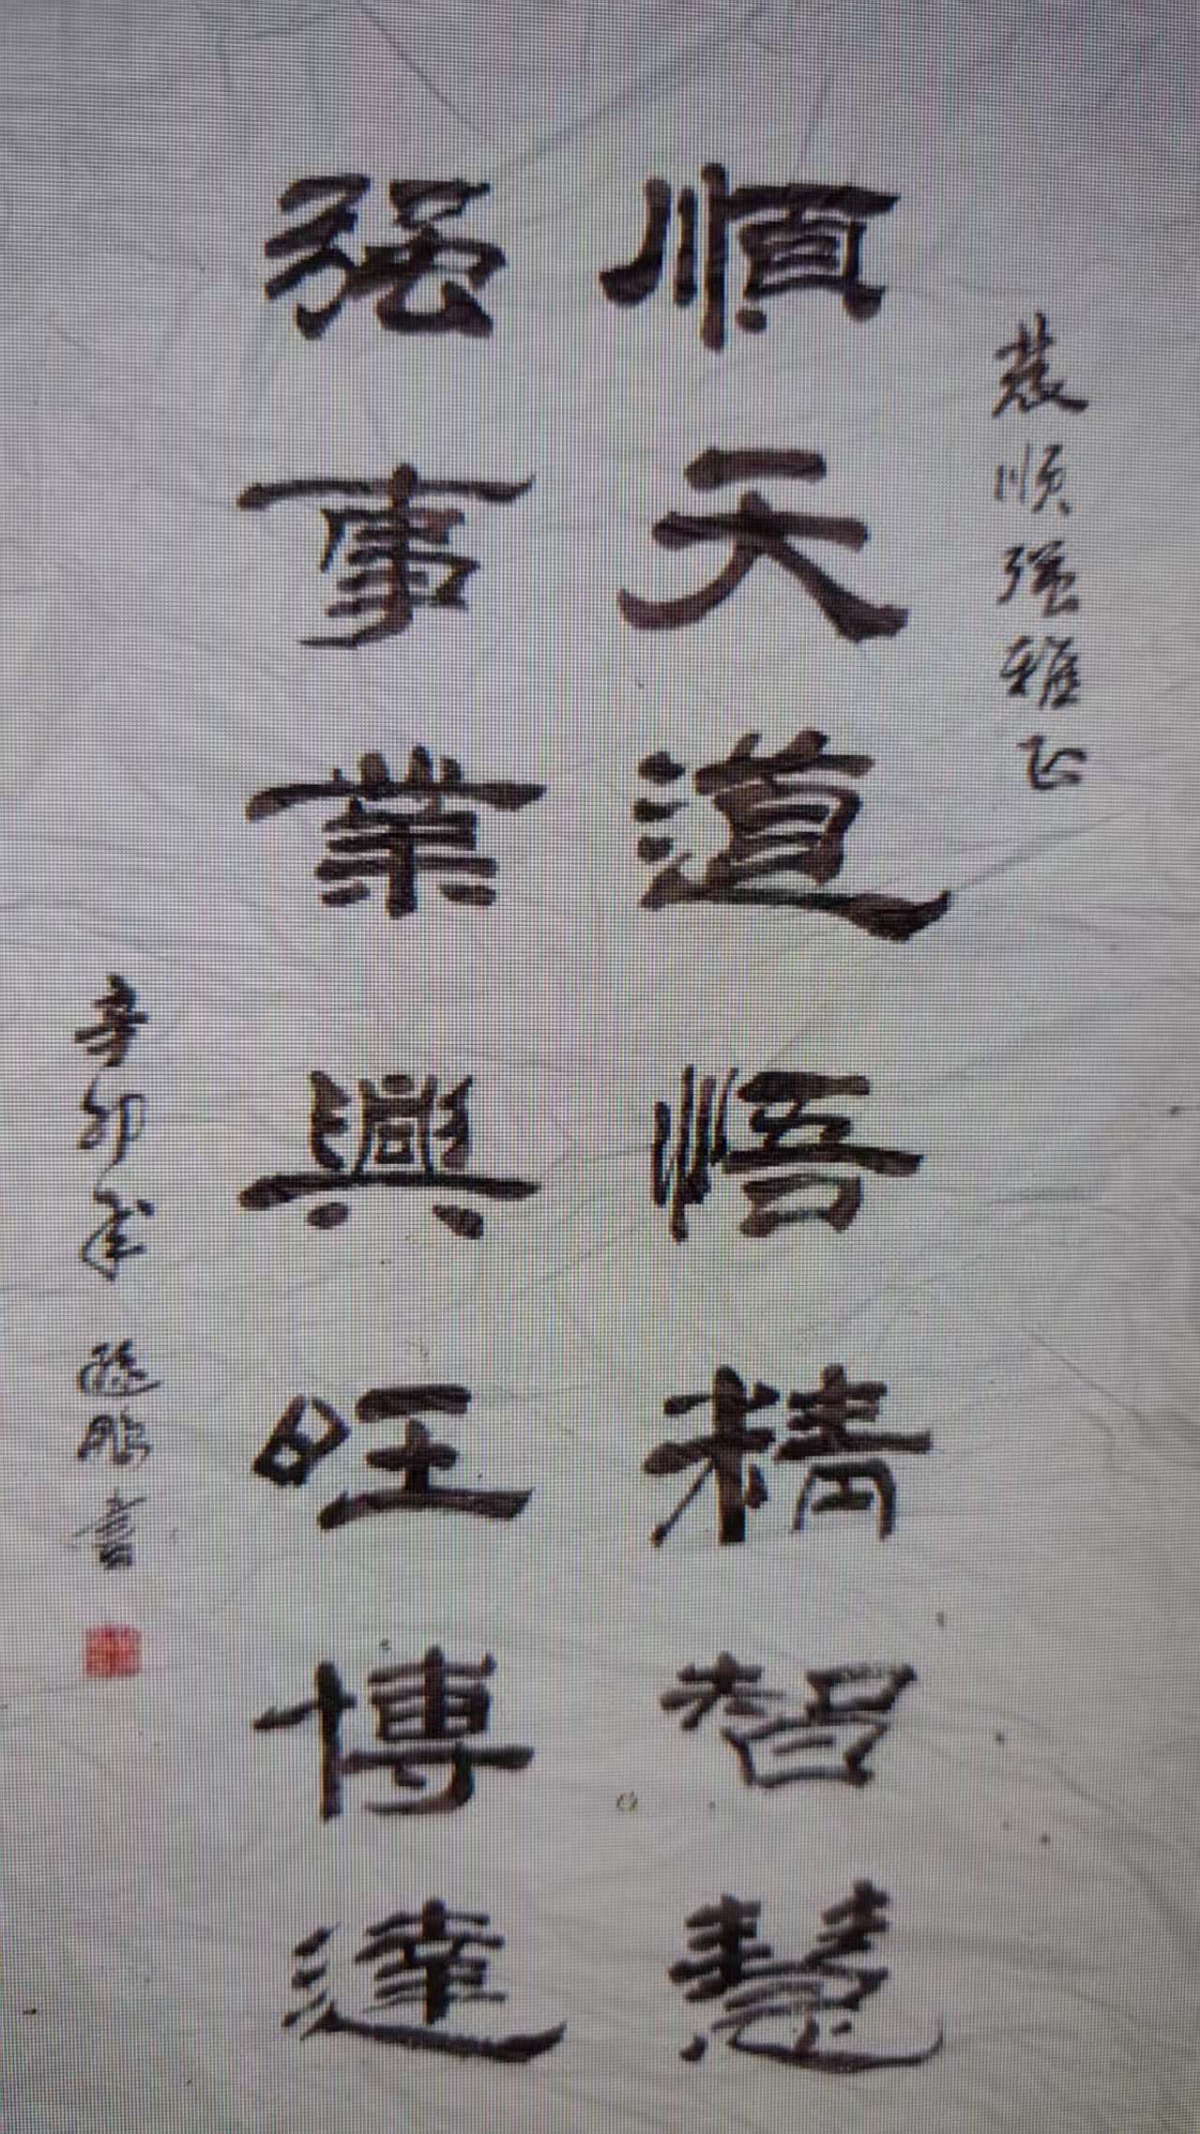 順强雅正
順天道悟精智慧
强事業興旺博達
辛卯年 書